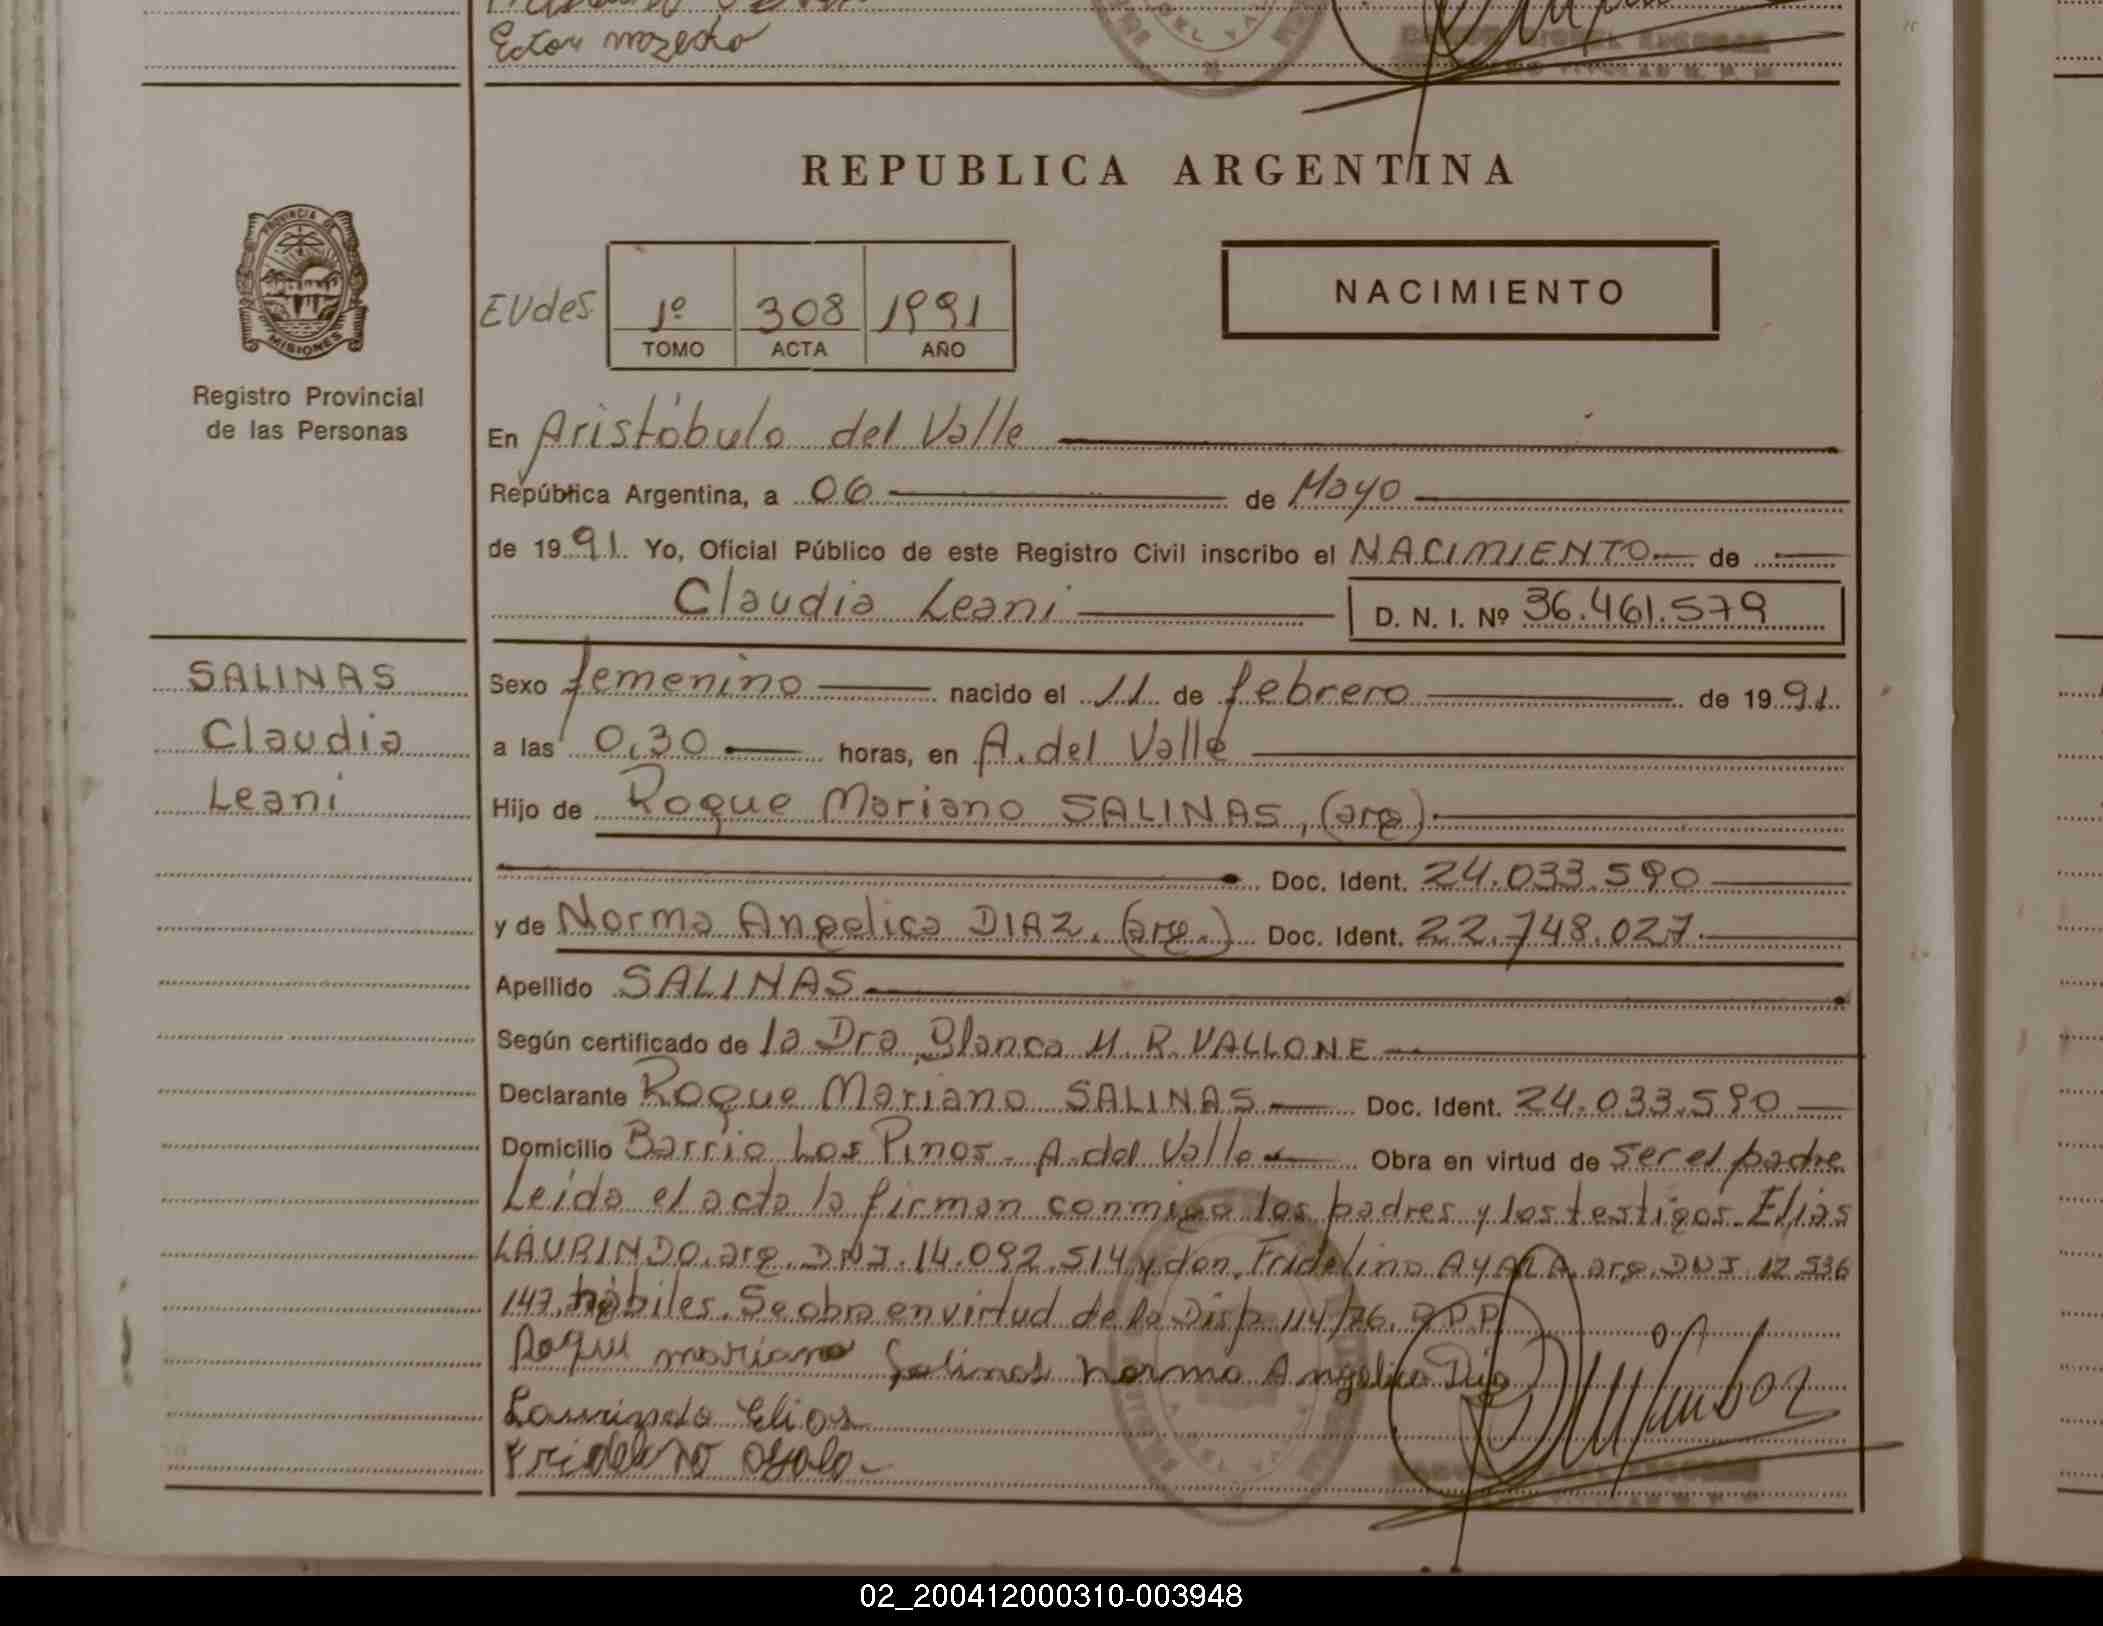 Ector mozecko
REPUBLICA ARGENTINA
PROVINCIA DE
MISIONES
Registro Provincial
de las Personas
EUdes
1º 308 1991
TOMO ACTA AÑO
NACIMIENTO
En Aristóbulo del Valle
República Argentina, a 06 de Mayo
de 1991. Yo, Oficial Público de este Registro Civil inscribo el NACIMIENTO de
Claudia Leani D. N. I. Nº 36.461.579
SALINAS
Claudia
Leani
Sexo femenino nacido el 11 de febrero de 1991.
a las 0,30 horas, en A. del Valle
Hijo de Roque Mariano SALINAS, (arg)
Doc. Ident. 24.033.590
y de Norma Angelica DIAZ, (arg.) Doc. Ident. 22.748.027.
Apellido SALINAS
Según certificado de la Dra Blanca M. R. VALLONE
Declarante Roque Mariano SALINAS Doc. Ident. 24.033.590
Domicilio Barrio Los Pinos - A. del Valle Obra en virtud de ser el padre
Leida el acta la firman conmigo los padres y los testigos Elias
LAURINDO, arg. DNI. 14.092.514 y don Fridelino AYALA, arg. DNI 12.536
147, habiles. Se obra en virtud de la Disp. 114/76. R.P.P.
Roque mariano Salinas Norma Angelica Dia
Laurindo Elias
Fridelino ayala
02_200412000310-003948